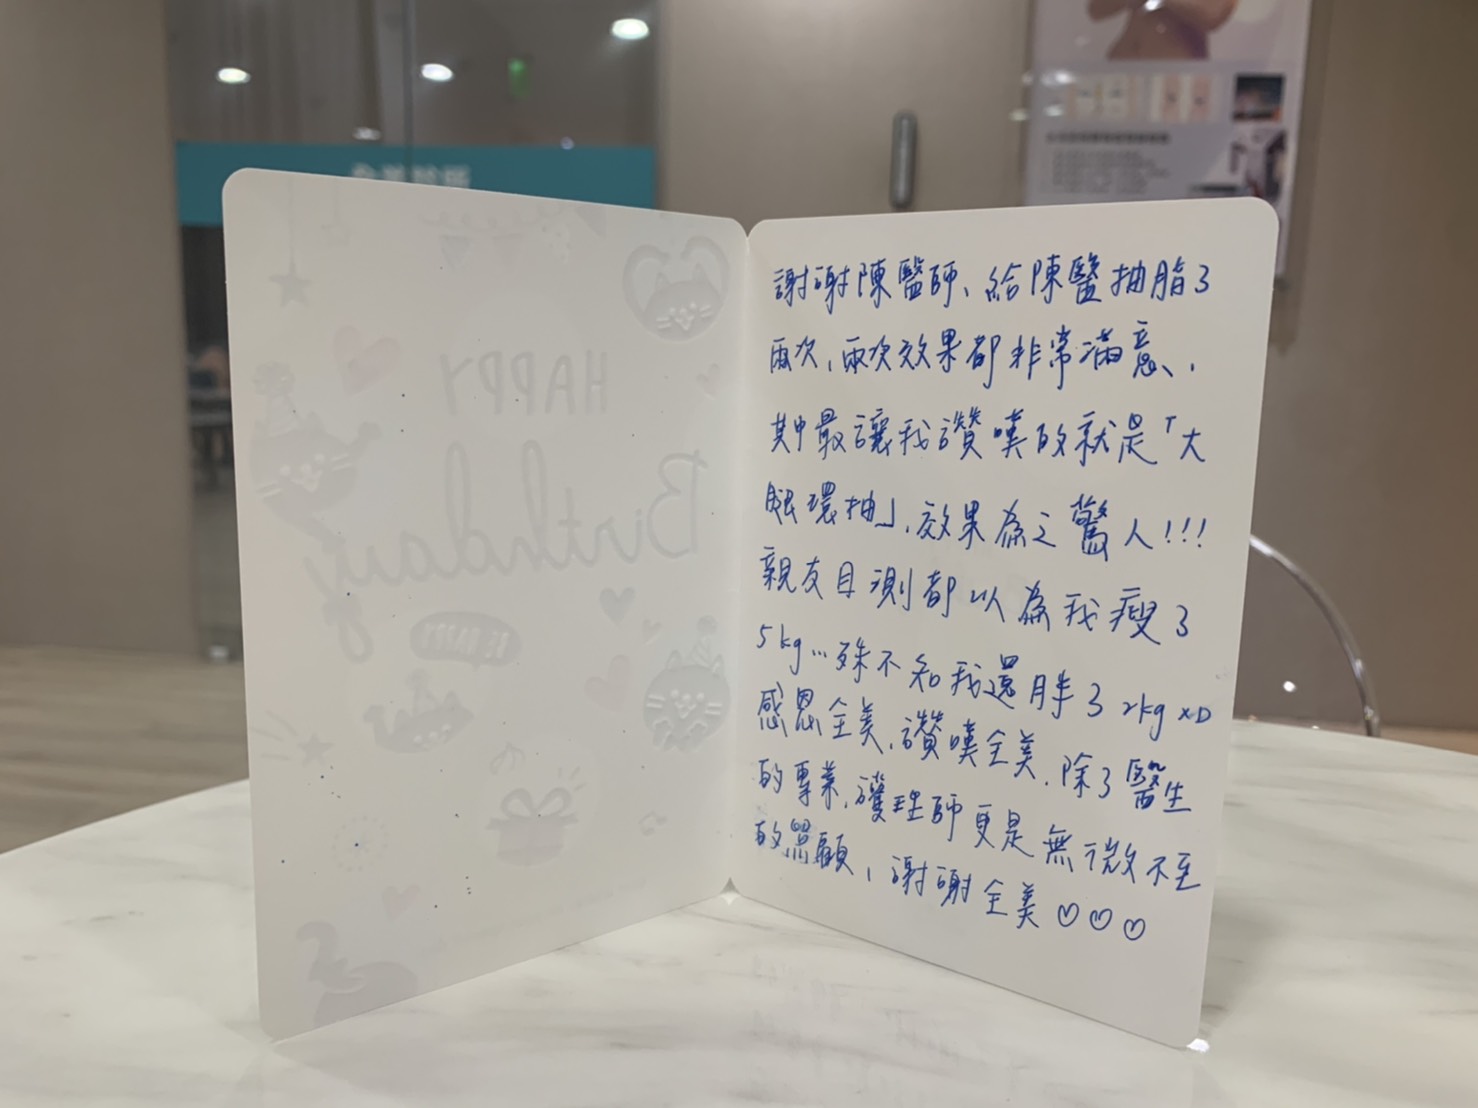 HAPPY
Birthday
BE HAPPY
謝謝陳醫師、給陳醫抽脂了
兩次,兩次效果都非常滿意、
其中最讓我讚嘆的就是「大
腿環抽」,效果為之驚人!!!
親友目測都以為我瘦了
5kg...殊不知我還胖了2kg XD
感恩全美,讚嘆全美.除了醫生
的專業,護理師更是無微不至
的照顧,謝謝全美♡♡♡